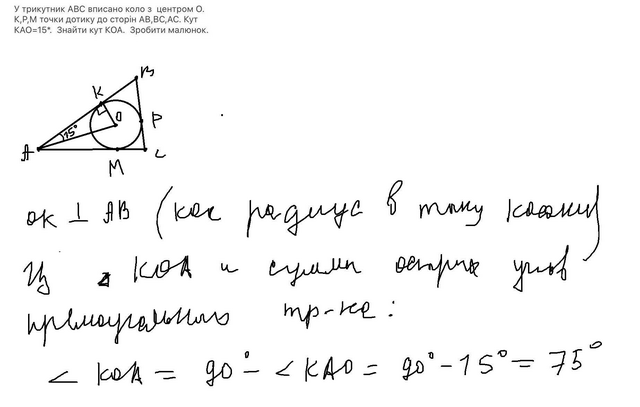 У трикутник АВС вписано коло з центром О.
К,Р,М точки дотику до сторін АВ,ВС,АС. Кут
КАО=15°. Знайти кут КОА. Зробити малюнок.
В
К
О
Р
15°
А
М
С
ОК ⊥ АВ (как радиус в точку касания)
Из △ КОА и сумма острых углов
прямоугольного тр-ка:
∠ КОА = 90° - ∠ КАО = 90° - 15° = 75°